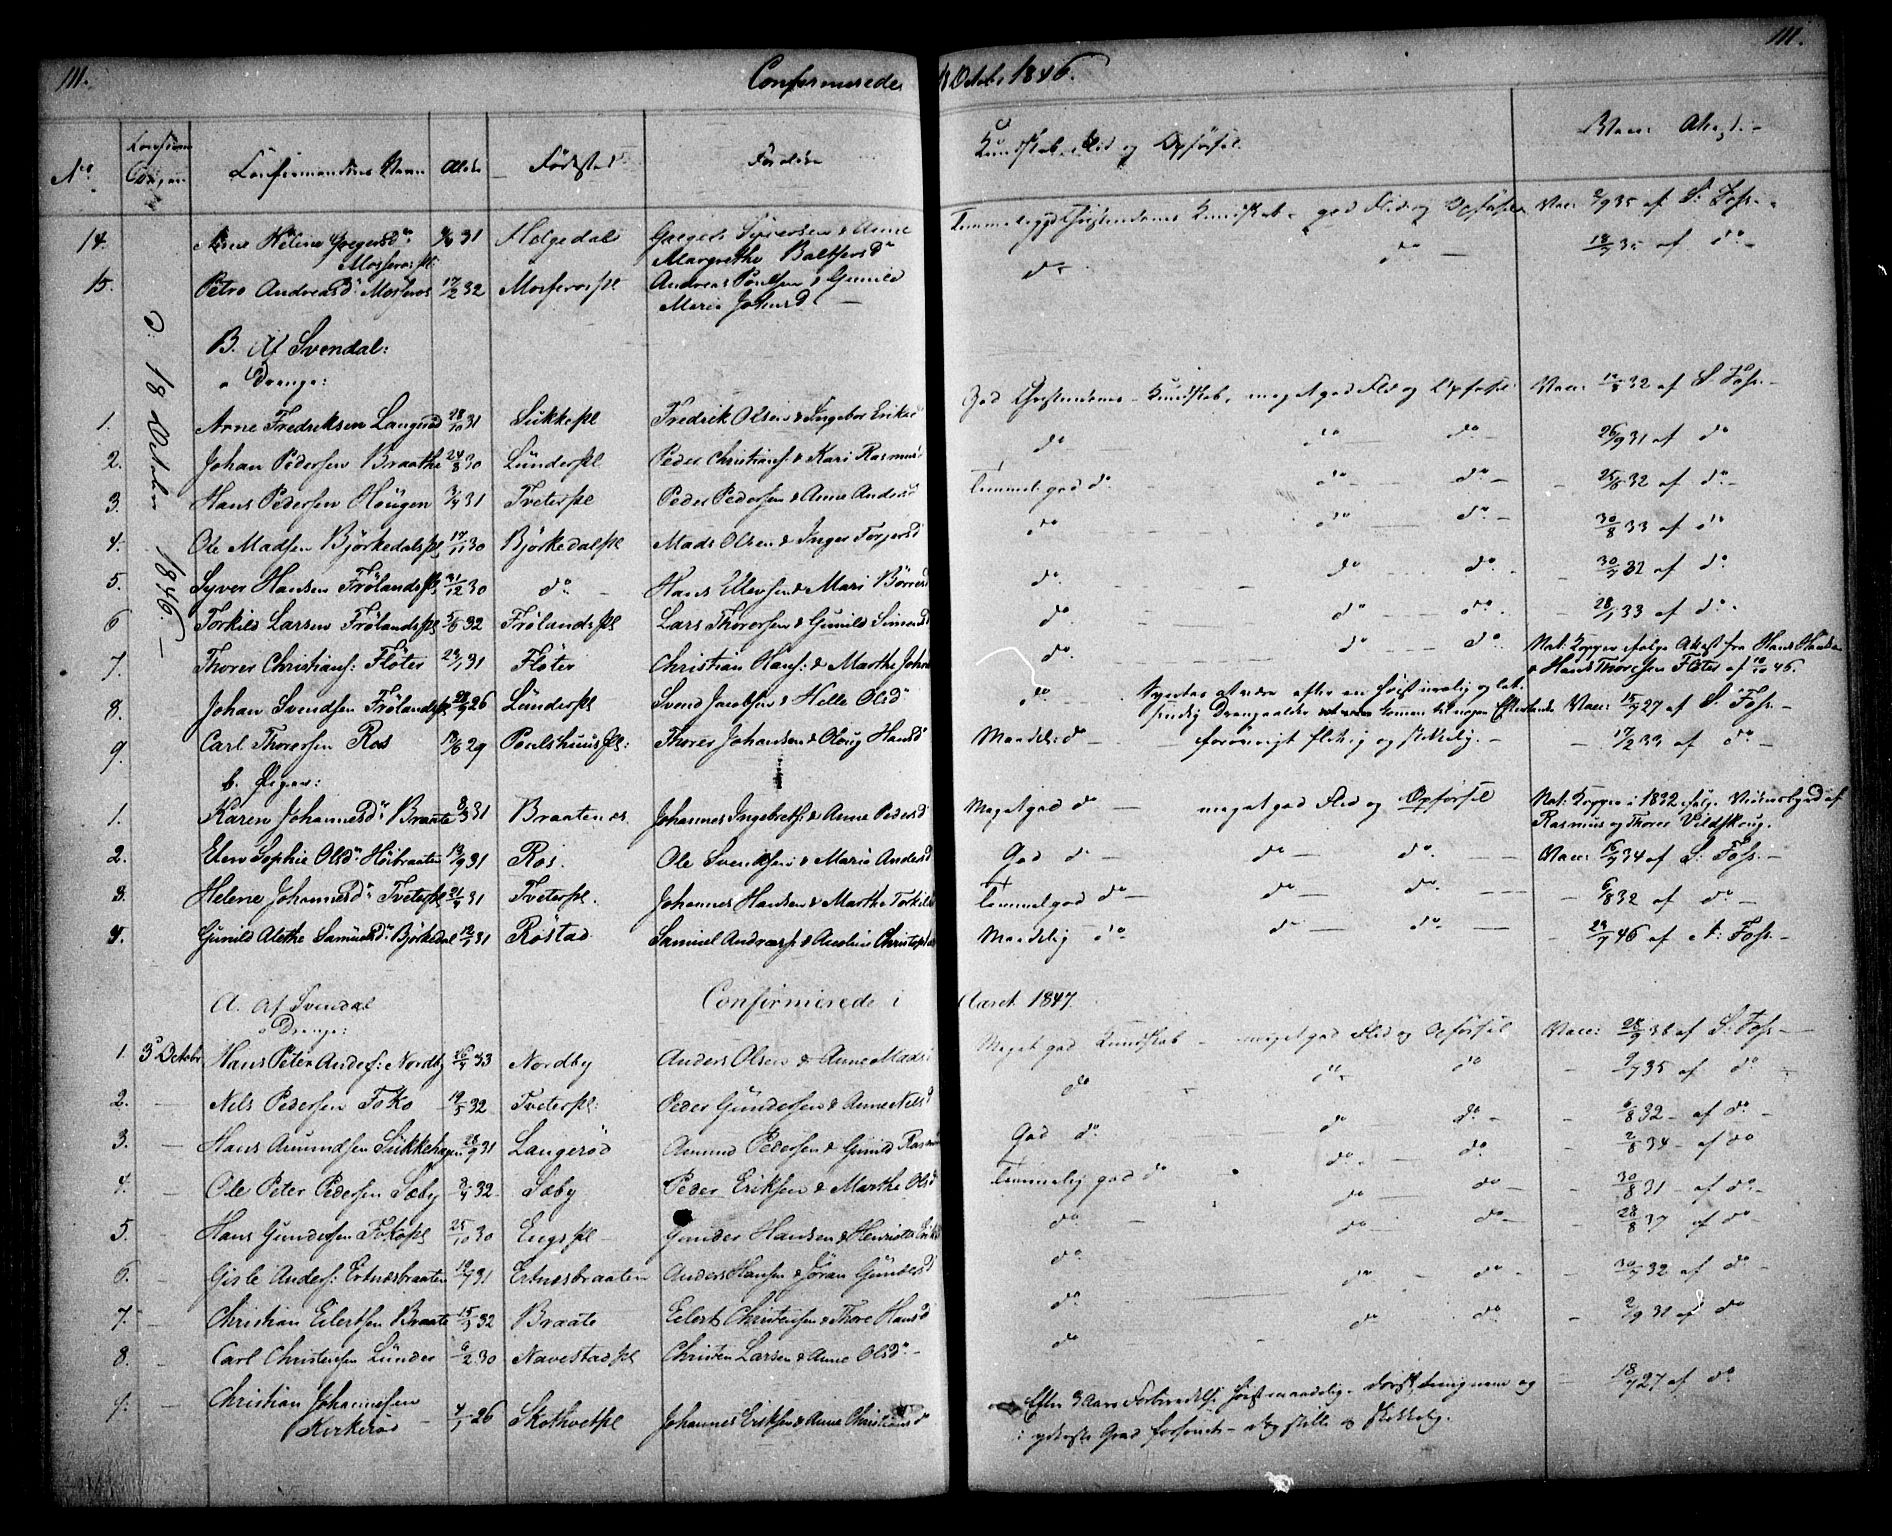 111. Confirmerede 18 Octob: 1846. 111.
No Confirmandens Navn Alder Fødested Forældre Kundskab, Flid og Opførsel Vacc: Attest
14. Anne Helene Gregersd: 31 Helgedal Gregers Syversen & Anne Temmelig god Christendoms Kundskab, god Flid og Opførsel Vacc: 2/9 35 af S: Foss.
Mosserospl. Margrethe Baltsersd
15. Petro Andreasd: Mosseros 17/2 32 Mosserospl Andreas & Gunild do do 18/7 35 af do
Maria Johansd
18 October 1846.
B. Af Svendal:
a Drenge:
1. Arne Fredriksen Langerød 28/10 31 Sukkepl Fredrik Olsen & Ingebor Eriksd God Christendoms Kundskab, meget god Flid og Opførsel Vacc: 32 af S. Foss.
2. Johan Pedersen Braathe 24/8 30 Lunderpl Peder Christians: & Kari Rasmusd do do do 26/9 31 af do
3. Hans Pedersen Hougen 31 Tveterpl Peder Pedersen & Anne Andersd Temmelig god do do do 25/8 32 af do
4. Ole Madsen Bjørkedalspl 17/11 30 Bjørkedalpl Mads Olsen & Inger Torgersd do do do 30/8 33 af do
5. Syver Hansen Frølandspl 31/12 30 do Hans Ellevsen & Mari Børresd do do do 30/7 32 af do
6 Torkild Larsen Frølandspl 5/6 32 Frølandspl Lars Thoresen & Gunild Simensd do do do 28/1 33 af do
7. Thorer Christians: Fløter 29/1 31 Fløter Christian Hans: & Marthe Johansd do do do Nat: Kopper ifølge Attest fra Hans Hansen
& Hans Thoresen Fløter af 10/10 46.
8. Johan Svendsen Frølandspl 26 Lunderpl Svend Jacobsen & Helle Olsd do Vacc: 15/7 27 af S. Foss.
9. Carl Thorersen Ros 29 Poulshuuspl: Thorer Johansen & Oloug Hansd Maadel: do forøvrigt flittig og skikkelig. 17/2 33 af do
b. Piger:
1. Karen Johannesd: Braate 8/3 31 Braaten Johannes Ingebrets: & Anne Pedersd Meget god do meget god Flid og Opførsel Nat: Kopper i 1832 ifølge Vidnesbyrd af
Rasmus og Thorer Vildskoug.
2. Elen Sophie Olsd: Høibraaten 31 Ros. Ole Svendsen & Marie Andersd God do do do Vacc: 16/7 34 af S: Foss.
3. Helene Johannesd: Tveterpl 21/4 31 Tveterpl. Johannes Hansen & Marthe Torkildsd Temmel god do do do 6/8 32 af do
4. Gunild Alethe Samuelsd: Bjørkedal 31 Røstad Samuel Andreas: & Anoline Christophersd Maadelig do do do 29/7 46 af A: Foss.
Confirmerede i Aaret 1847.
A. Af Svendal
a Drenge:
1. 3 October Hans Peter Anders: Nordby 16/4 33 Nordby Anders Olsen & Anne Madsd Meget god Kundskab meget god Flid og Opførsel Vacc: 28/9 36 af S: Foss.
2. Nils Pedersen Foko 19/5 32 Tveterpl: Peder Gundersen & Anne Nilsd do do do 35 af do
3. Hans Amundsen Sukkehagen 28/9 31 Langerød Amund Pedersen & Gunild Rasmusd God do do do 6/8 32 af do
4. Ole Peter Pedersen Sæby 8/4 32 Sæby Peder Eriksen & Marthe Olsd Temmelig god do do do 2/8 34 af do
5. Hans Gundersen Fokopl 25/10 30 Engspl Gunder Hansen & Henriette do do do 30/8 31 af do
6. Gisle Anders: Ertnesbraaten 19/7 31 Ertnesbraaten Anders Hansen & Jøran Gundersd do do do 28/8 37 af do
7. Christian Eilertsen Braate 15/3 32 Braate Eilert Christensen & Thore Hansd do do do 30/7 32 af do
8. Carl Christensen Lunder 6/2 30 Navestadpl Christen Larsen & Anne Olsd do do do 2/9 31 af do
9. Christian Johannesen
Kirkerød 4/1 26 Skothvetpl Johannes Eriksen & Anne Christiansd Efter 3 Aars Forberedelse høist maadelig. 18/7 27 af do
i yderste Grad forsømt. stille og skikkelig.